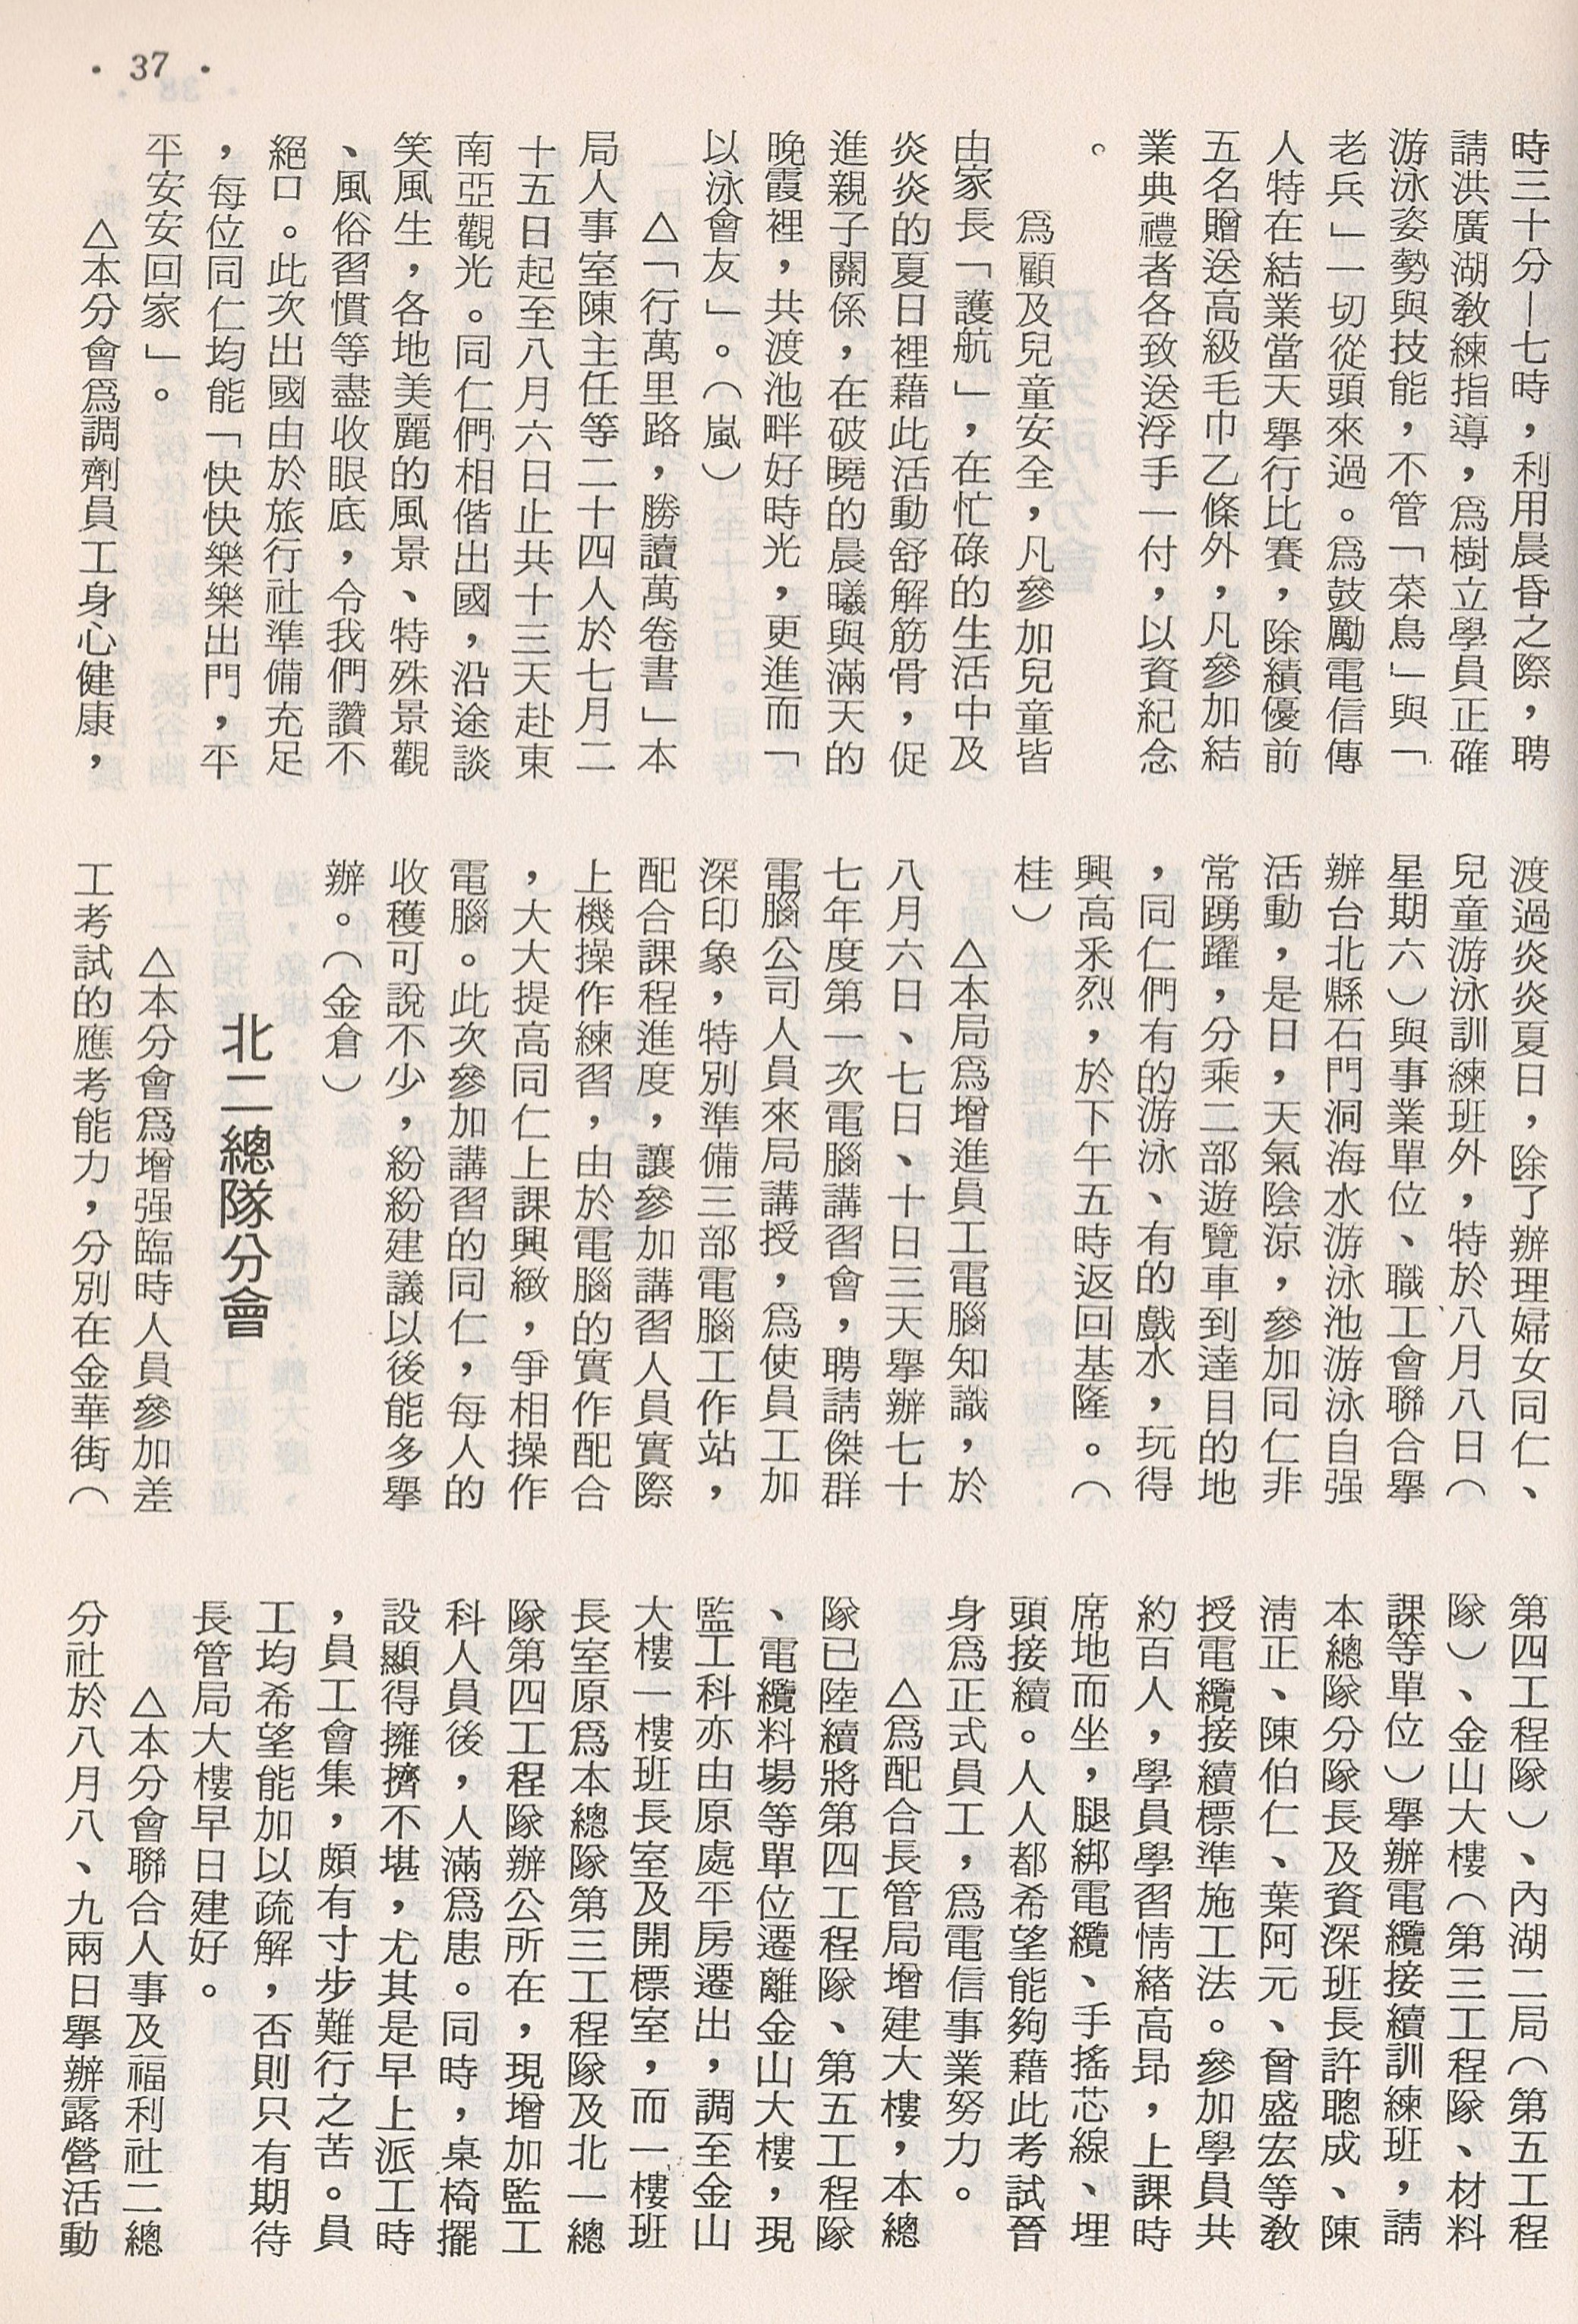 • 37 •
時三十分—七時，利用晨昏之際，聘
請洪廣湖教練指導，爲樹立學員正確
游泳姿勢與技能，不管「菜鳥」與「
老兵」一切從頭來過。爲鼓勵電信傳
人特在結業當天舉行比賽，除績優前
五名贈送高級毛巾乙條外，凡參加結
業典禮者各致送浮手一付，以資紀念
。
爲顧及兒童安全，凡參加兒童皆
由家長「護航」，在忙碌的生活中及
炎炎的夏日裡藉此活動舒解筋骨，促
進親子關係，在破曉的晨曦與滿天的
晚霞裡，共渡池畔好時光，更進而「
以泳會友」。（嵐）
△「行萬里路，勝讀萬卷書」本
局人事室陳主任等二十四人於七月二
十五日起至八月六日止共十三天赴東
南亞觀光。同仁們相偕出國，沿途談
笑風生，各地美麗的風景、特殊景觀
、風俗習慣等盡收眼底，令我們讚不
絕口。此次出國由於旅行社準備充足
，每位同仁均能「快快樂樂出門，平
平安安回家」。
△本分會爲調劑員工身心健康，
渡過炎炎夏日，除了辦理婦女同仁、
兒童游泳訓練班外，特於八月八日（
星期六）與事業單位、職工會聯合舉
辦台北縣石門洞海水游泳池游泳自强
活動，是日，天氣陰涼，參加同仁非
常踴躍，分乘二部遊覽車到達目的地
，同仁們有的游泳、有的戲水，玩得
興高釆烈，於下午五時返回基隆。（
桂）
△本局爲增進員工電腦知識，於
八月六日、七日、十日三天舉辦七十
七年度第一次電腦講習會，聘請傑群
電腦公司人員來局講授，爲使員工加
深印象，特別準備三部電腦工作站，
配合課程進度，讓參加講習人員實際
上機操作練習，由於電腦的實作配合
，大大提高同仁上課興緻，爭相操作
電腦。此次參加講習的同仁，每人的
收穫可說不少，紛紛建議以後能多舉
辦。（金倉）
北二總隊分會
△本分會爲增强臨時人員參加差
工考試的應考能力，分別在金華街（
第四工程隊）、內湖二局（第五工程
隊）、金山大樓（第三工程隊、材料
課等單位）舉辦電纜接續訓練班，請
本總隊分隊長及資深班長許聰成、陳
清正、陳伯仁、葉阿元、曾盛宏等教
授電纜接續標準施工法。參加學員共
約百人，學員學習情緒高昂，上課時
席地而坐，腿綁電纜、手搖芯線、埋
頭接續。人人都希望能夠藉此考試晉
身爲正式員工，爲電信事業努力。
△爲配合長管局增建大樓，本總
隊已陸續將第四工程隊、第五工程隊
、電纜料場等單位遷離金山大樓，現
監工科亦由原處平房遷出，調至金山
大樓一樓班長室及開標室，而一樓班
長室原爲本總隊第三工程隊及北一總
隊第四工程隊辦公所在，現增加監工
科人員後，人滿爲患。同時，桌椅擺
設顯得擁擠不堪，尤其是早上派工時
，員工會集，頗有寸步難行之苦。員
工均希望能加以疏解，否則只有期待
長管局大樓早日建好。
△本分會聯合人事及福利社二總
分社於八月八、九兩日舉辦露營活動